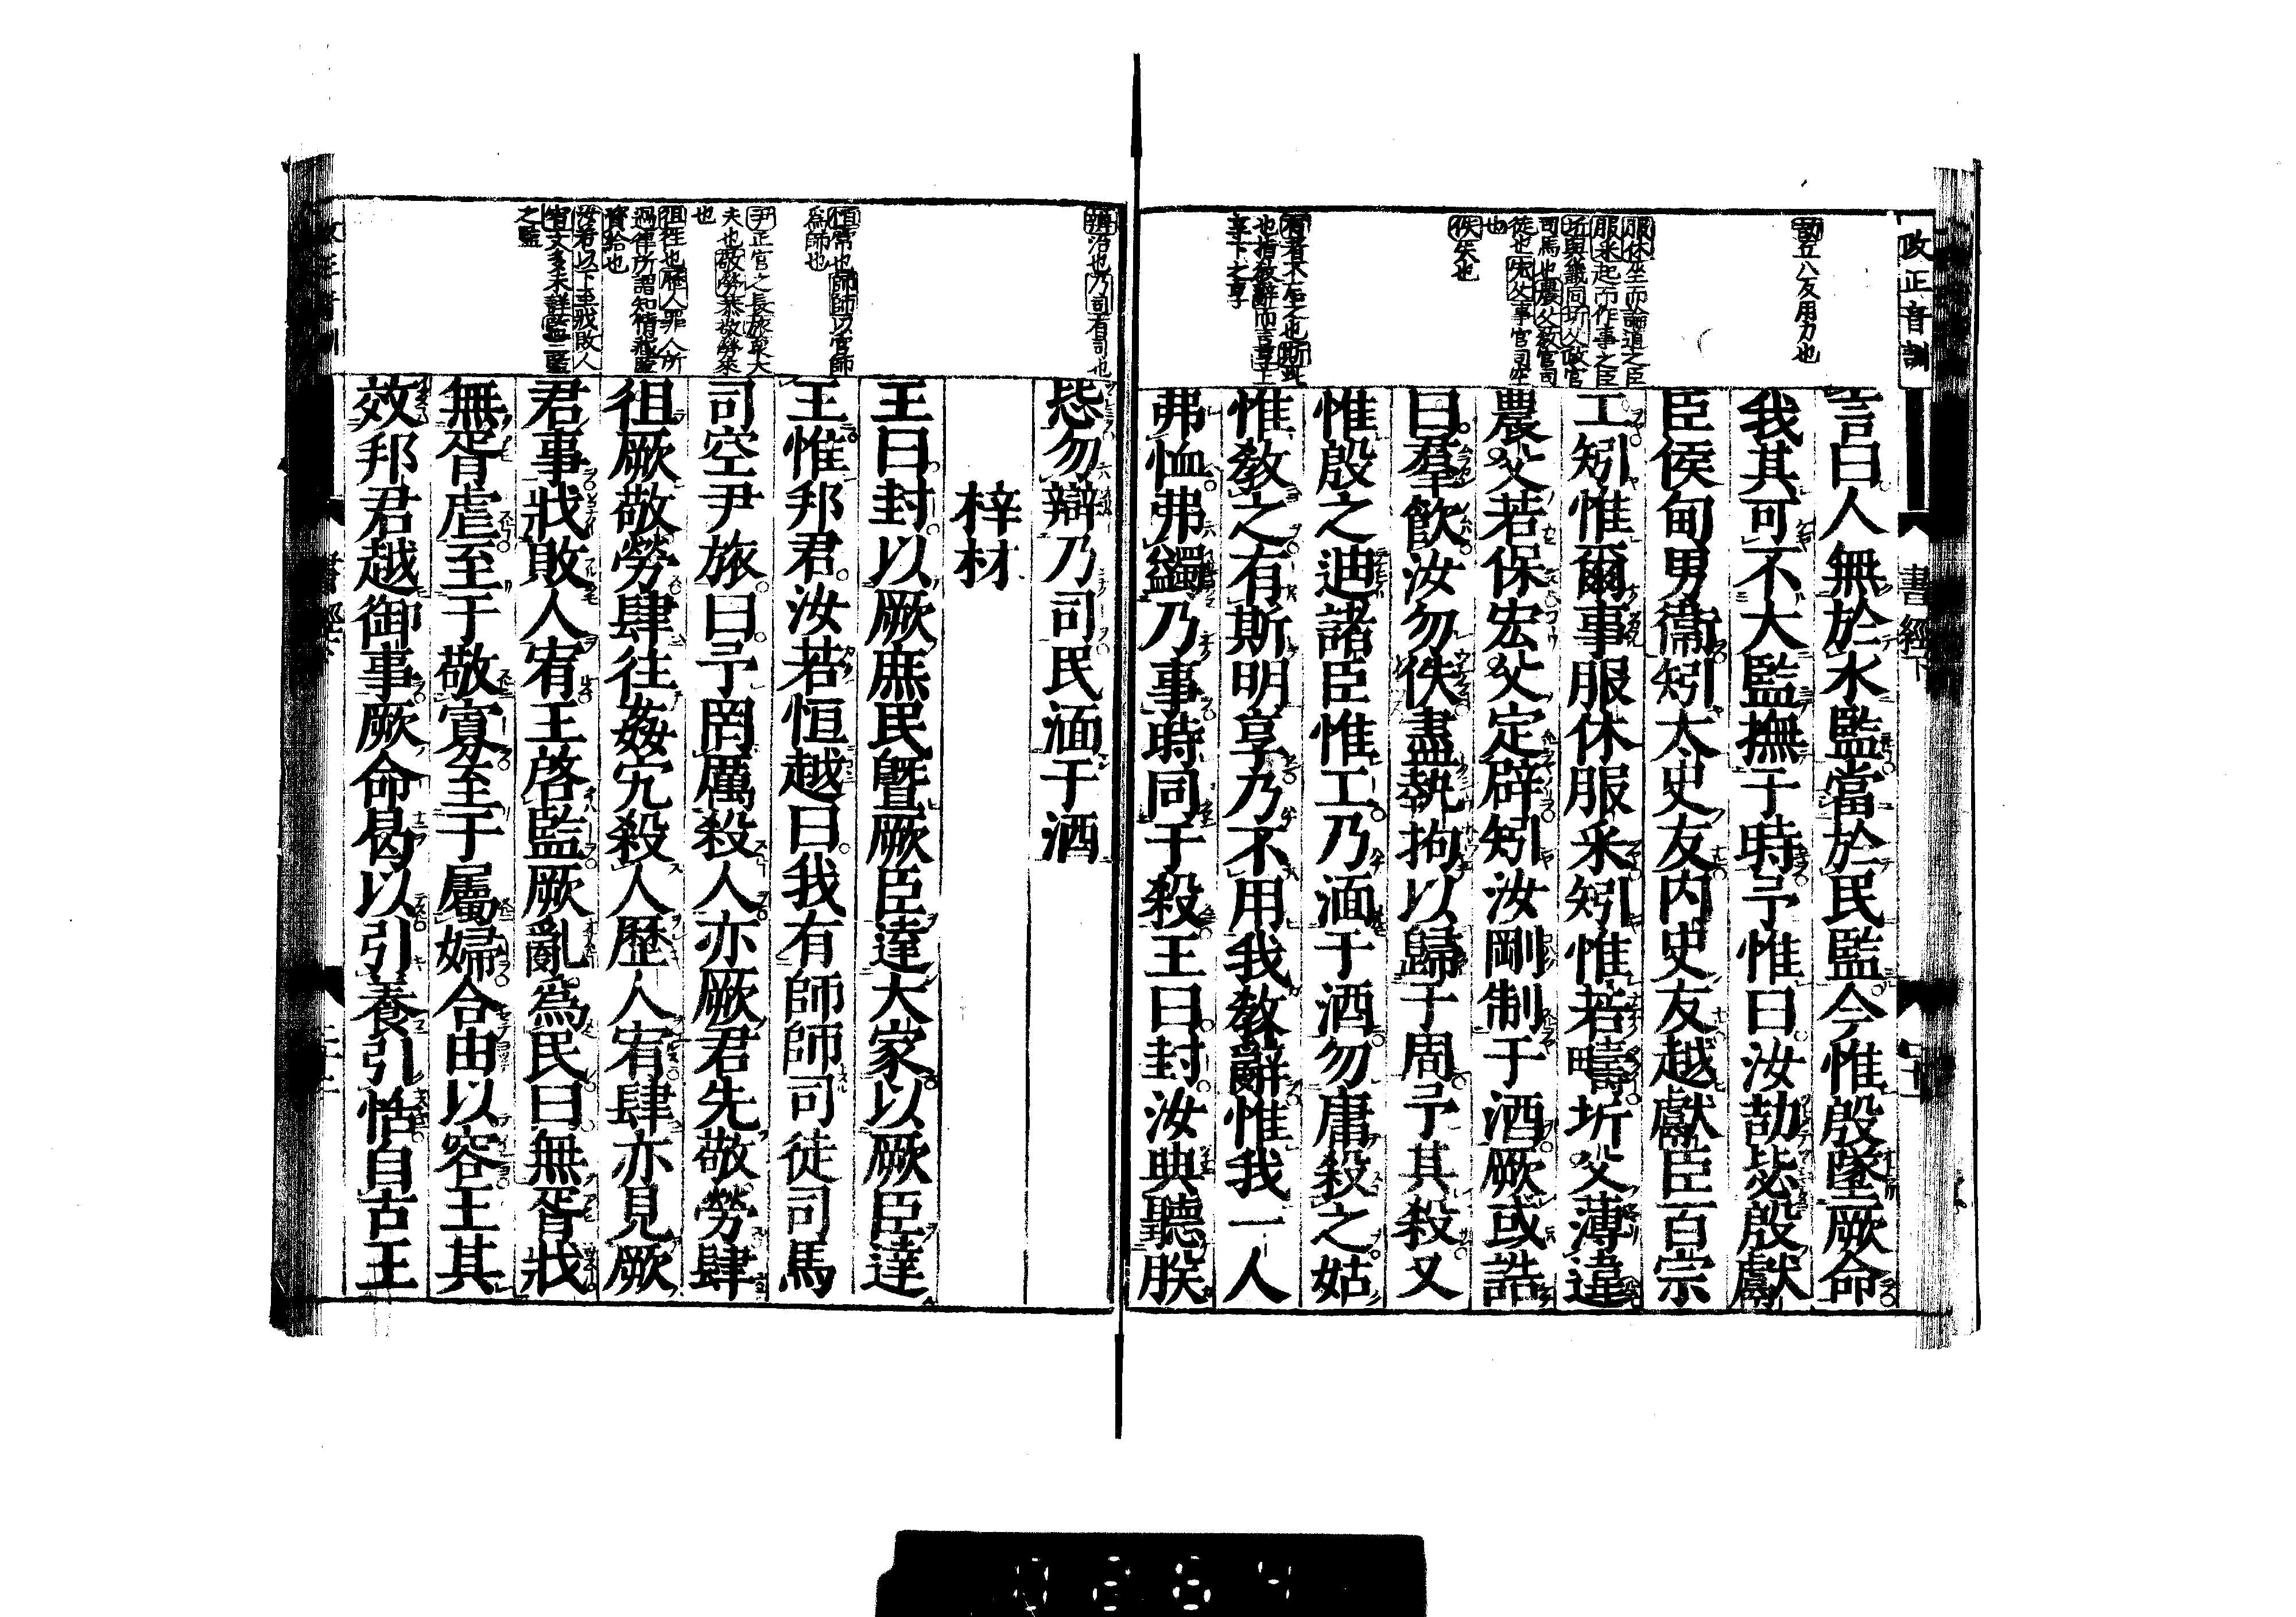 改正音訓
書經下
劼五八友用力也
服休坐而論道之臣
服采起而作事之臣
圻與畿同圻父政官
司馬也農父教官司
徒也宏父事官司空
也
佚失也
有者不忘之也斯此
也指教辭而言享上
享下之享
言曰人無於水監當於民監今惟殷墜厥命
我其可不大監撫于時予惟曰汝劼毖殷獻
臣侯甸男衛矧太史友內史友越獻臣百宗
工矧惟爾事服休服采矧惟若疇圻父薄違
農父若保宏父定辟矧汝剛制于酒厥或誥
曰羣飲汝勿佚盡執拘以歸于周予其殺又
惟殷之迪諸臣惟工乃湎于酒勿庸殺之姑
惟敎之有斯明享乃不用我敎辭惟我一人
弗恤弗蠲乃事時同于殺王曰封汝典聽朕
辯治也乃司有司也
恒常也師師以官師
爲師也
尹正官之長旅衆大
夫也敬勞恭敬勞來
也
徂往也歷人罪人所
過律所謂知情藏匿
資給也
戕敗人
之監
毖勿辯乃司民湎于酒
梓材
王曰封以厥庶民曁厥臣達大家以厥臣達
王惟邦君汝若恒越曰我有師師司徒司馬
司空尹旅曰予罔厲殺人亦厥君先敬勞肆
徂厥敬勞肆往姦宄殺人歷人宥肆亦見厥
君事戕敗人宥王啓監厥亂爲民曰無胥戕
無胥虐至于敬寡至于屬婦合由以容王其
效邦君越御事厥命曷以引養引恬自古王